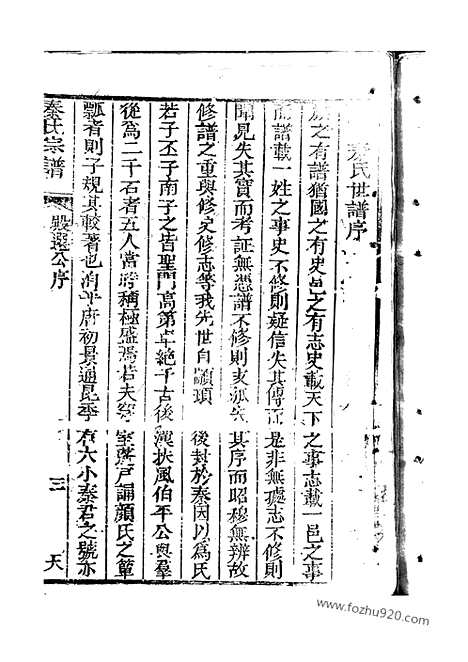 秦氏世譜序
族之有譜猶國之有史邑之有志史載天下之事志載一邑之事
而譜載一姓之事史不修則疑信失其傳而是非無據志不修則
聞見失其實而考証無憑譜不修則支派失其序而昭穆無辨故
修譜之重與修史修志等我先世自顓頊後封於秦因以為氏
若子丕子南子之皆聖門高第卓絕千古後漢扶風伯平公與羣
從為二千石者五人當時稱極盛焉若夫窮室蓽戶誦顔氏之簞
瓢者則子規其較著也洵乎唐初景通昆季有六小秦君之號亦
秦氏宗譜
殿選公序
三
天
www.fozhu920.com